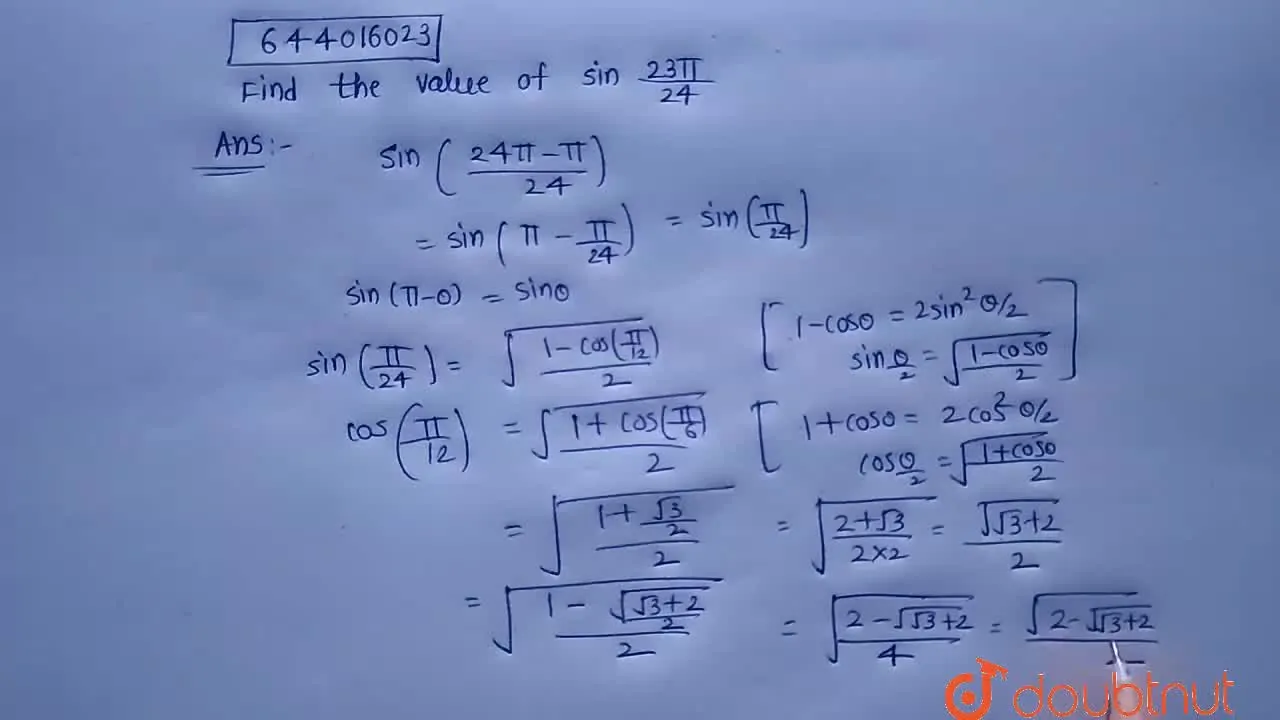 644016023
Find the value of sin 23π/24
Ans:- sin (24π-π/24)
= sin (π - π/24) = sin(π/24)
sin(π-θ) = sinθ
[1-cosθ = 2sin² θ/2
sin θ/2 = √(1-cosθ/2)]
sin(π/24) = √(1-cos(π/12)/2)
cos(π/12) = √(1+cos(π/6)/2)
[1+cosθ = 2cos² θ/2
cos θ/2 = √(1+cosθ/2)
= √(1+√3/2/2) = √(2+√3/2×2) = √(√3+2)/2
= √(1-√(√3+2)/2/2) = √(2-√(√3+2)/4) = √(2-√(√3+2))/2
doubtnut